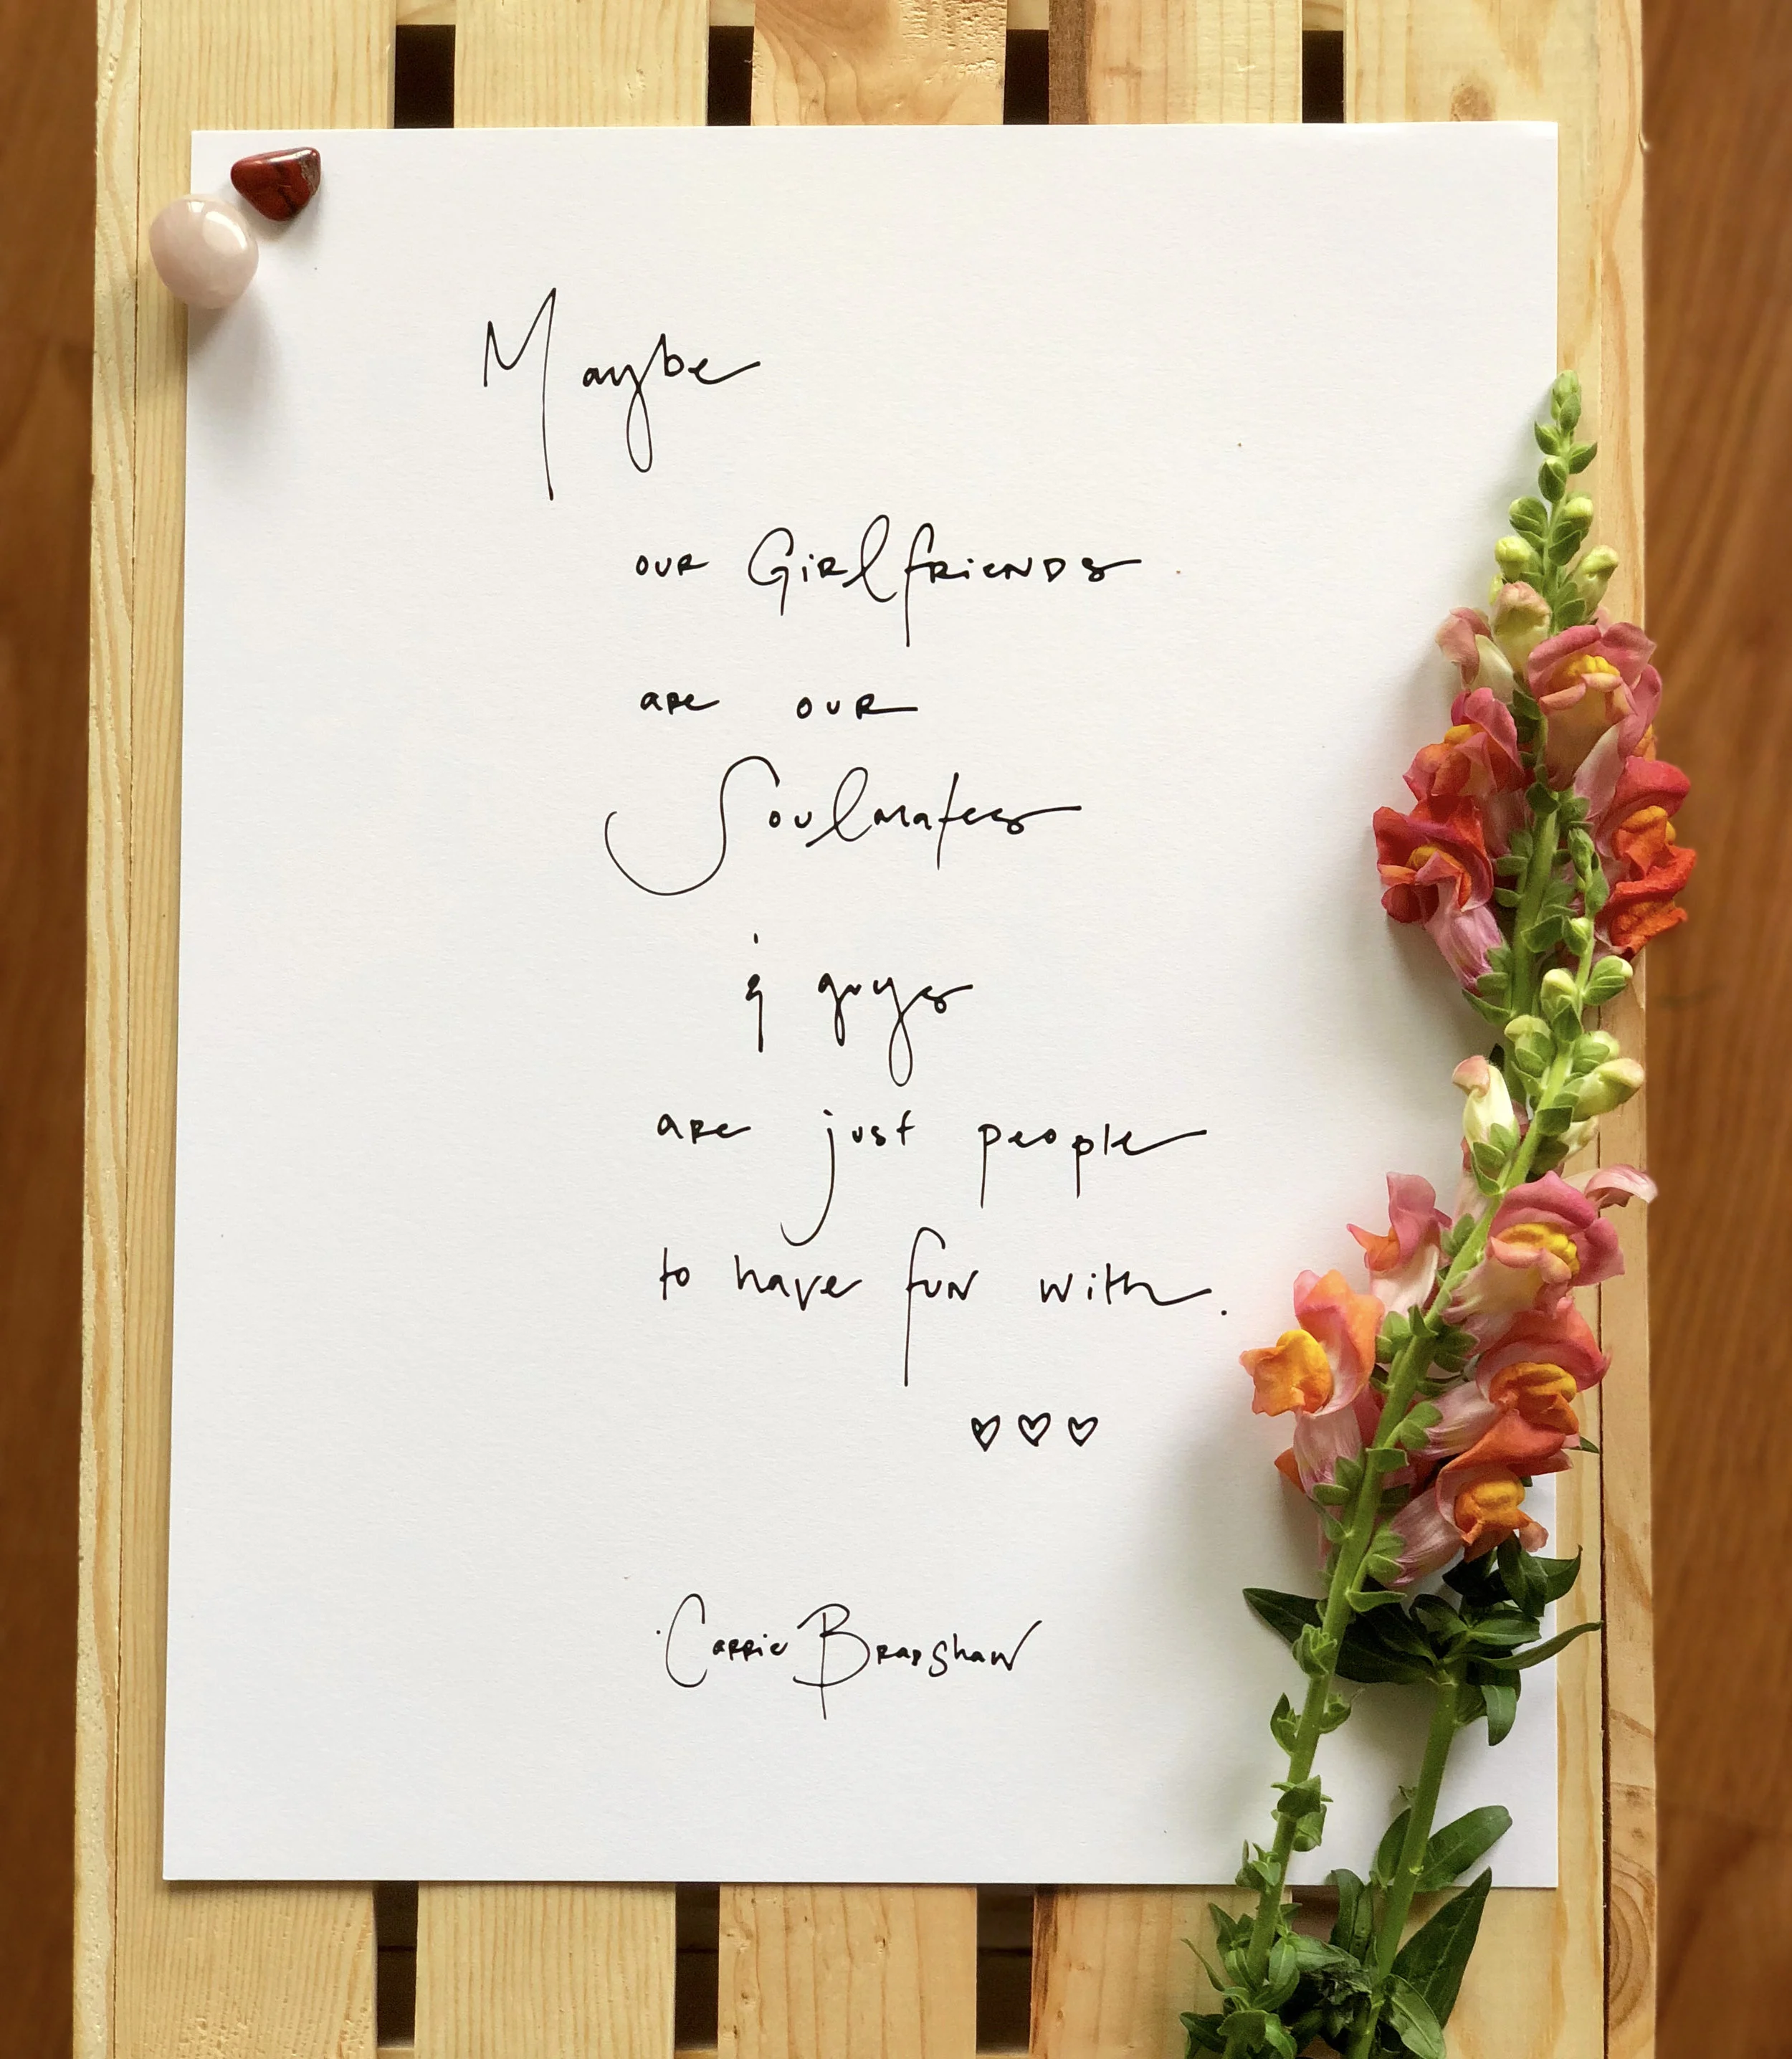 Maybe
our Girlfriends
are our
Soulmates
& guys
are just people
to have fun with.
♡♡♡
Carrie Bradshaw